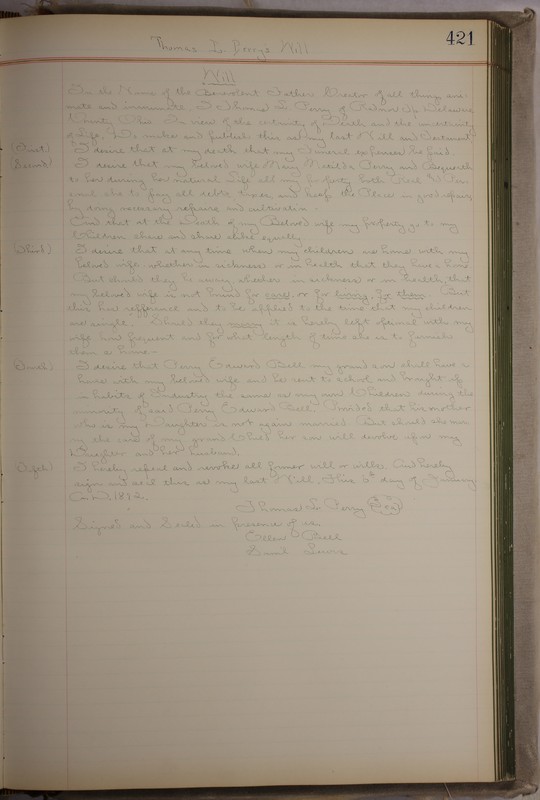 421
Thomas L. Perry's Will
Will
In the Name of the Benevolent Father Director of all things ani-
mate and inanimate. I Thomas L. Perry of Radnor Tp Delaware
County Ohio. In view of the certainty of Death and the uncertainty
of Life, Do make and publish this as my last Will and Testament
(First) I desire that at my death that my funeral expenses be paid.
(Second) I desire that my beloved wife Mary Matilda Perry
to her during her natural life all my property both Real &
and she to pay all debts taxes, and keep the Place in good repair
by doing necessary repairs and cultivation.
And that at the Death of my Beloved wife my property go to my
Children share and share alike equally
(Third) I desire that at any time when my children are home with my
beloved wife whether in sickness or in health that they have a home
But should they be away whether in sickness or in health, that
my beloved wife is not bound for care or for living for them. But
this has refference and to be applied to the time that my children
are single. Should they marry it is hereby left optional with my
wife how frequent and for what length of time she is to furnish
them a home.
(Fourth) I desire that Perry Edward Bell my grand son shall have a
home with my beloved wife and be sent to school and brought up
in habits of Industry the same as my own Children during the
minority of said Perry Edward Bell. Provided that his mother
who is my Daughter is not again married. But should she mar-
ry the care of my grand Child her son will devolve upon my
Daughter and her husband.
(Fifth) I hereby repeal and revoke all former will or wills. And hereby
sign and seal this as my last Will. This 5th day of January
A.D. 1892.
Thomas L. Perry (Seal)
Signed and Sealed in presence of us.
Ellen Bell
Lewis